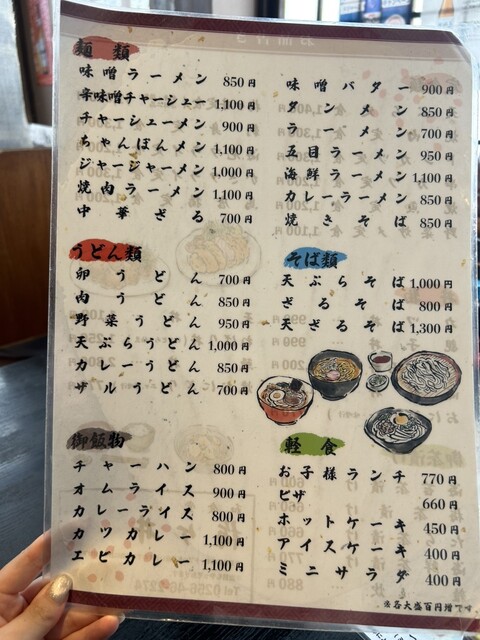 麺類
味噌ラーメン 850円
辛味噌チャーシュー 1,100円
チャーシューメン 900円
ちゃんぽんメン 1,100円
ジャージャーメン 1,000円
焼肉ラーメン 1,100円
中華ざる 700円
味噌バター 900円
タンメン 850円
ラーメン 700円
五目ラーメン 950円
海鮮ラーメン 1,100円
カレーラーメン 850円
焼きそば 850円
うどん類
卵うどん 700円
肉うどん 850円
野菜うどん 950円
天ぷらうどん 1,000円
カレーうどん 850円
ザルうどん 700円
そば類
天ぷらそば 1,000円
ざるそば 800円
天ざるそば 1,300円
御飯物
チャーハン 800円
オムライス 900円
カレーライス 800円
カツカレー 1,100円
エビカレー 1,100円
軽食
お子様ランチ 770円
ピザ 660円
ホットケーキ 450円
アイスケーキ 400円
ミニサラダ 400円
大盛百円増